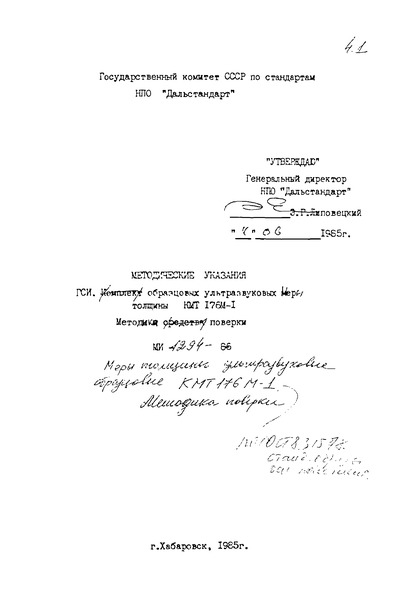 4.1
Государственный комитет СССР по стандартам
НПО "Дальстандарт"
"УТВЕРЖДАЮ"
Генеральный директор
НПО "Дальстандарт"
Э.Г.Липовецкий
"4" 06 1985г.
МЕТОДИЧЕСКИЕ УКАЗАНИЯ
ГСИ. Комплект образцовых ультразвуковых меры
толщины КМТ 176М-I
Методика средства поверки
МИ 1294- 86
Меры толщины ультразвуковые
образцовые КМТ 176 М-1.
Методика поверки
ГОСТ 8.315
г.Хабаровск, 1985г.